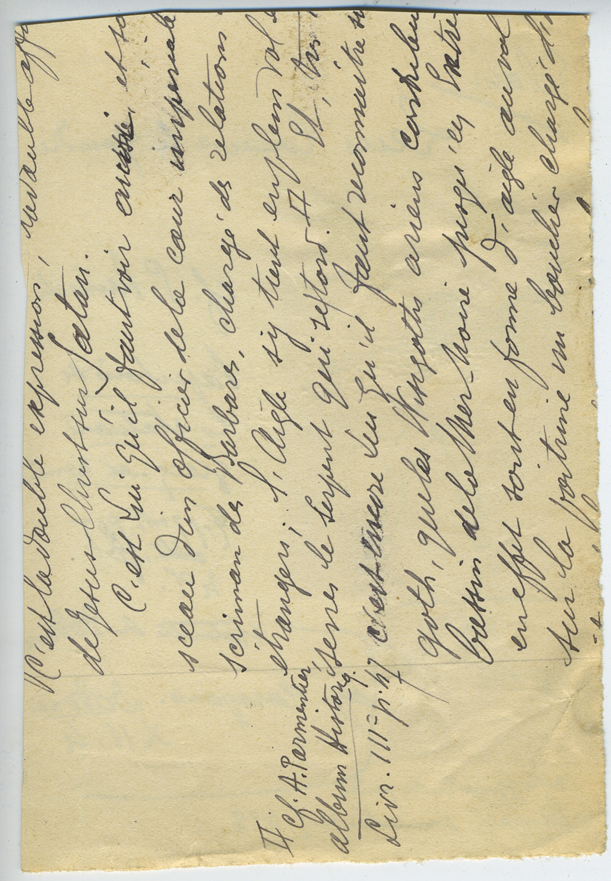 C'est la double expression,
de Jésus Christ sur Satan.
C'est lui qu'il faut voir aussi, et
sceau d'un officier de la cour impériale
scriman des Barbares, chargé des relations
étrangers; l'Aigle s'y tient en plein vol
serres le serpent qui se tord. # Et,
c'est encore lui qu'il faut reconnaître
goth, que les Wisigoths ariens
bassin de la Mer-Noire jusqu'en
en effet sont en forme d'aigle au vol
sur la poitrine un bouclier chargé d'
# Cf. A. Parmentier
album Historiq.
Livr. III = p. 47